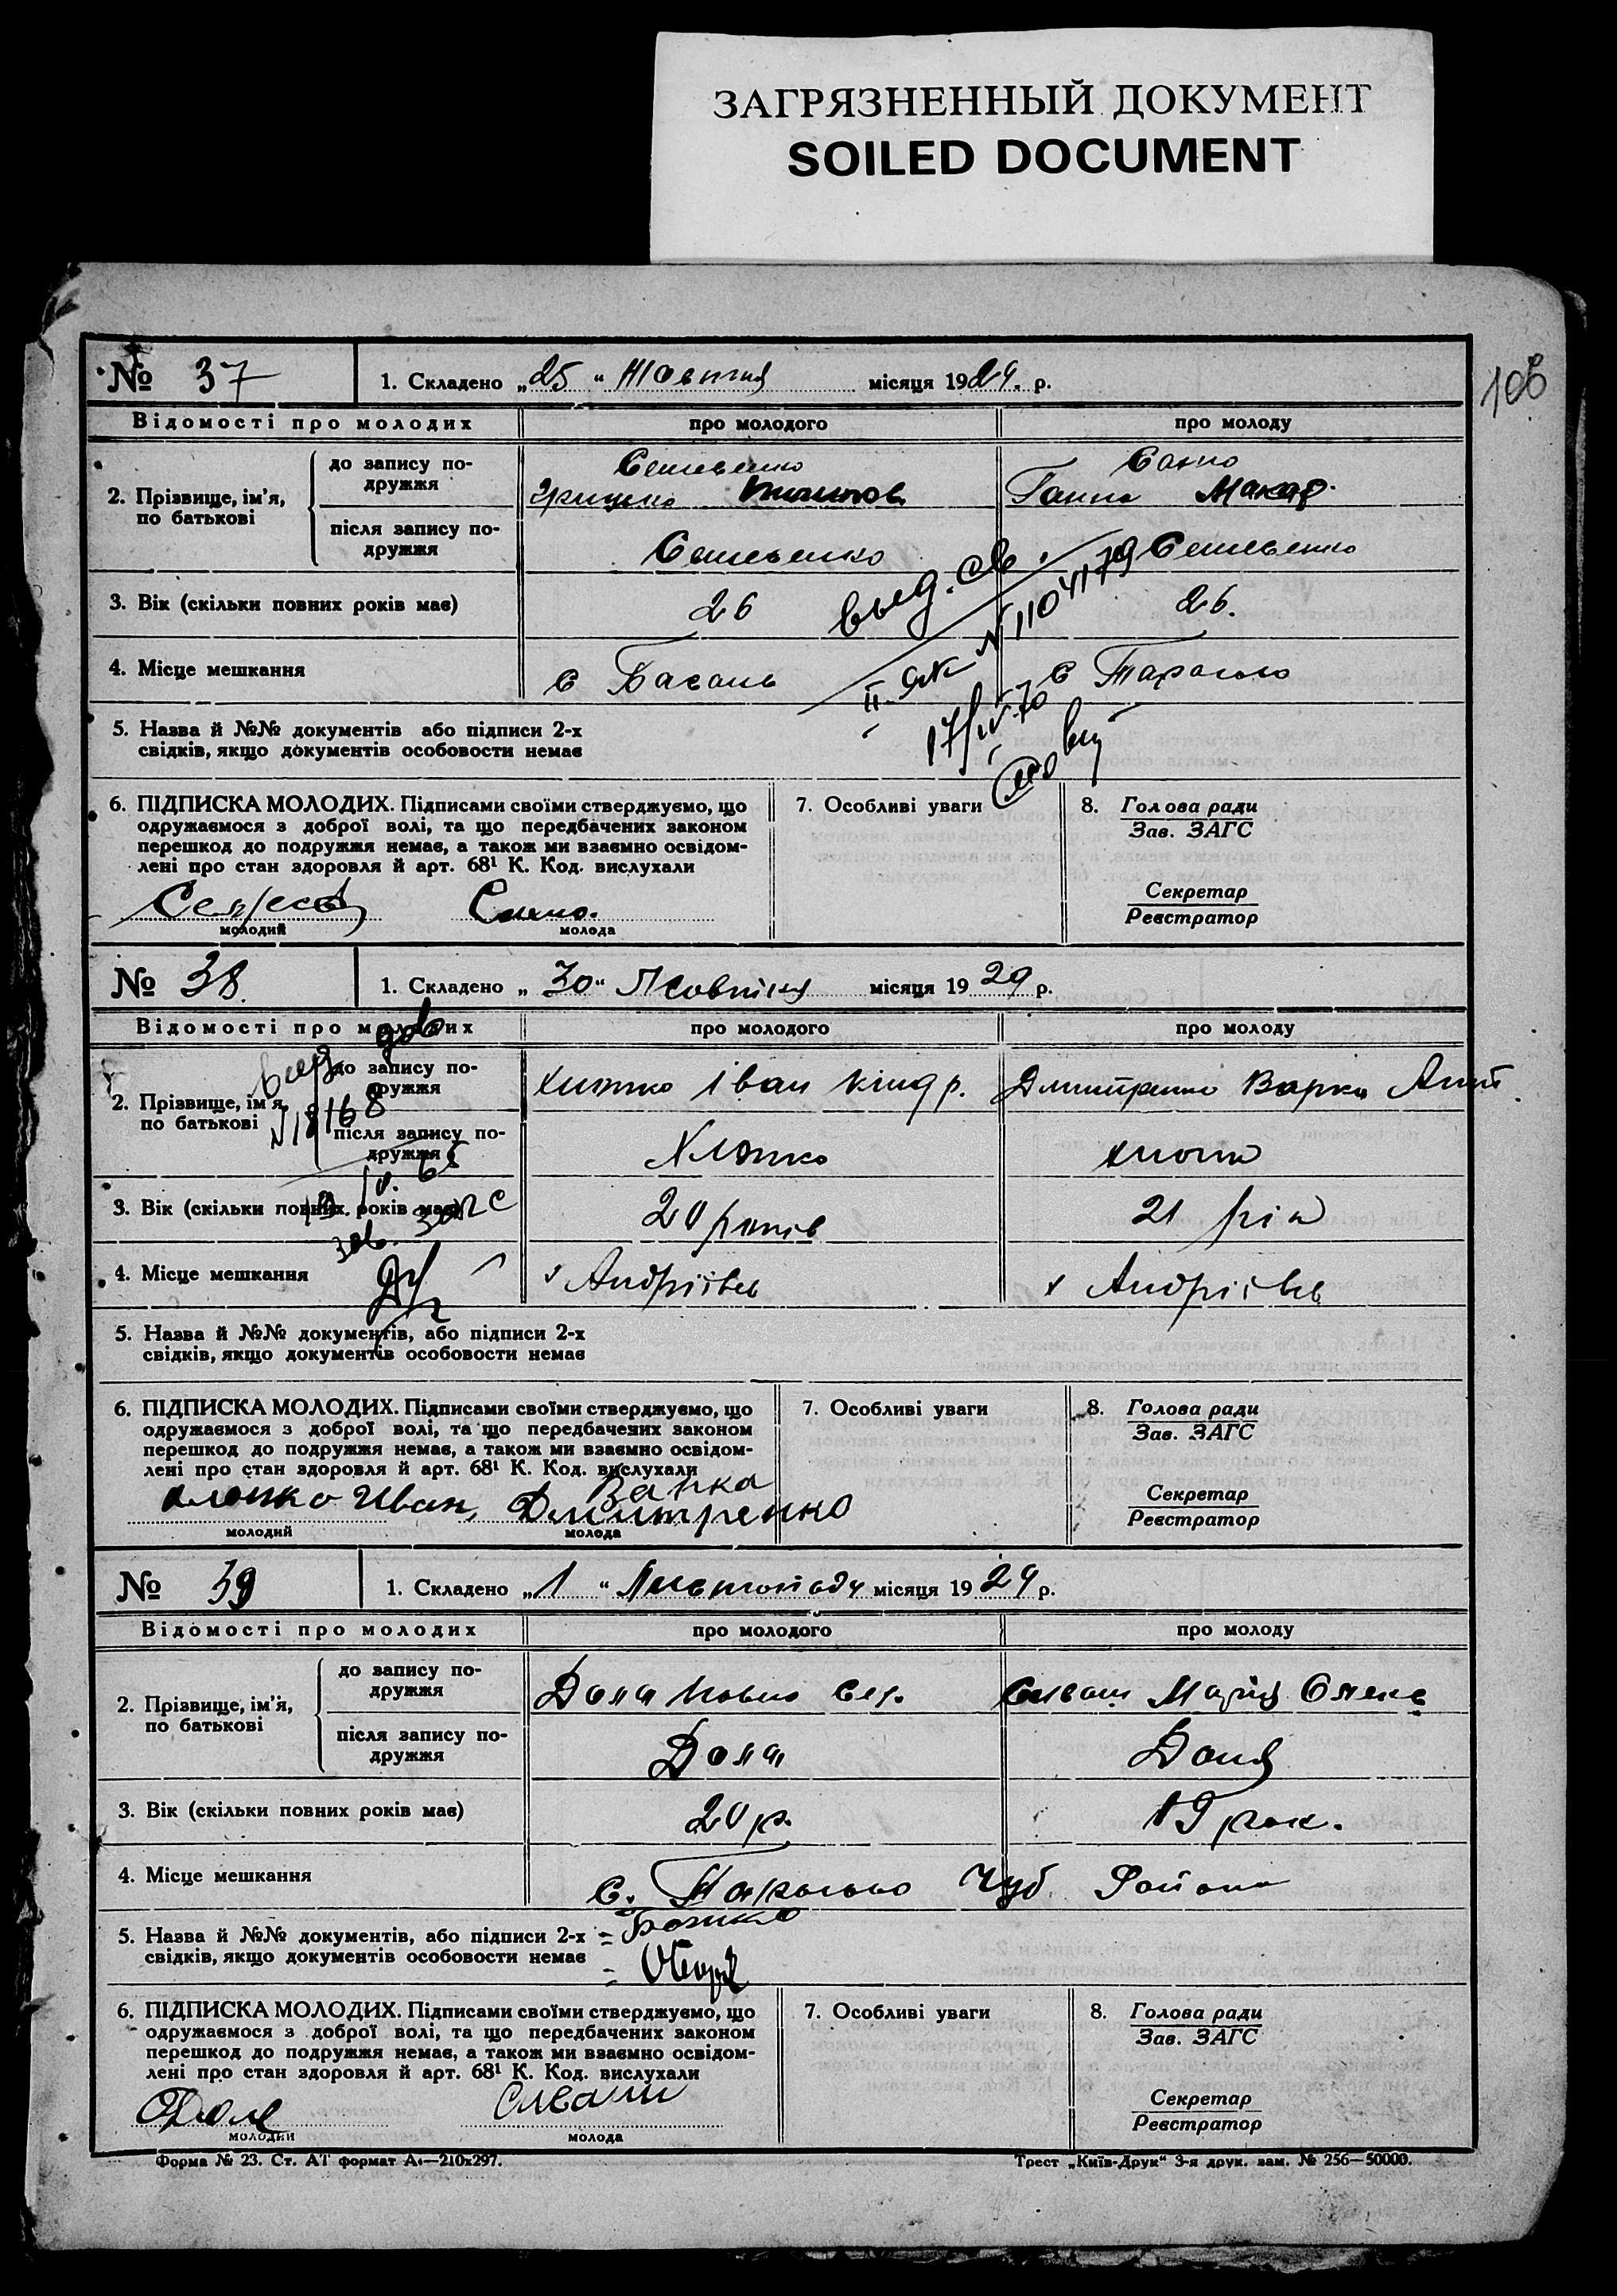 ЗАГРЯЗНЕННЫЙ ДОКУМЕНТ
SOILED DOCUMENT
№ 37
1. Складено „25“ Жовтня місяця 1929. р.
Відомості про молодих
про молодого
про молоду
2. Прізвище, ім'я, по батькові
до запису подружжя
Ганна Макар.
після запису подружжя
3. Вік (скільки повних років має)
26
26.
4. Місце мешкання
с Басань
с
выд. св.
II-ЯК № 1104179
17/IV-70
5. Назва й №№ документів або підписи 2-х
свідків, якщо документів особовости немає
6. ПІДПИСКА МОЛОДИХ. Підписами своїми стверджуємо, що
одружаємося з доброї волі, та що передбачених законом
перешкод до подружжя немає, а також ми взаємно освідом-
лені про стан здоровля й арт. 68¹ К. Код. вислухали
молодий
молода
7. Особливі уваги
8. Голова ради
Зав. ЗАГС
Секретар
Реєстратор
№ 38.
1. Складено „30“ Жовтня місяця 1929 р.
Відомості про молодих
про молодого
про молоду
2. Прізвище, ім'я,
по батькові
до запису по-
дружжя
Хижко Іван Кіндр.
Дмитренко Варка
після запису по-
дружжя
3. Вік (скільки повних років має)
20 років
21 рік
4. Місце мешкання
х Андріївка
х Андріївка
№ 18168
зав. загс
5. Назва й №№ документів, або підписи 2-х
свідків, якщо документів особовости немає
6. ПІДПИСКА МОЛОДИХ. Підписами своїми стверджуємо, що
одружаємося з доброї волі, та що передбачених законом
перешкод до подружжя немає, а також ми взаємно освідом-
лені про стан здоровля й арт. 68¹ К. Код. вислухали
Иван,
Варка
Дмитренко
молодий
молода
7. Особливі уваги
8. Голова ради
Зав. ЗАГС
Секретар
Реєстратор
№ 39
1. Складено „1“ Листопаду місяця 1929 р.
Відомості про молодих
про молодого
про молоду
2. Прізвище, ім'я,
по батькові
до запису по-
дружжя
Доля
Сиваш Марія Олекс
після запису по-
дружжя
Доля
Доля
3. Вік (скільки повних років має)
20 р.
19 рок.
4. Місце мешкання
с. Чуб. Району
5. Назва й №№ документів, або підписи 2-х
свідків, якщо документів особовости немає
Божко
6. ПІДПИСКА МОЛОДИХ. Підписами своїми стверджуємо, що
одружаємося з доброї волі, та що передбачених законом
перешкод до подружжя немає, а також ми взаємно освідом-
лені про стан здоровля й арт. 68¹ К. Код. вислухали
Доля
Сиваш
молодий
молода
7. Особливі уваги
8. Голова ради
Зав. ЗАГС
Секретар
Реєстратор
Форма № 23. Ст. АТ формат А₄—210х297.
Трест „Київ-Друк“ 3-я друк. зам. № 256—50000.